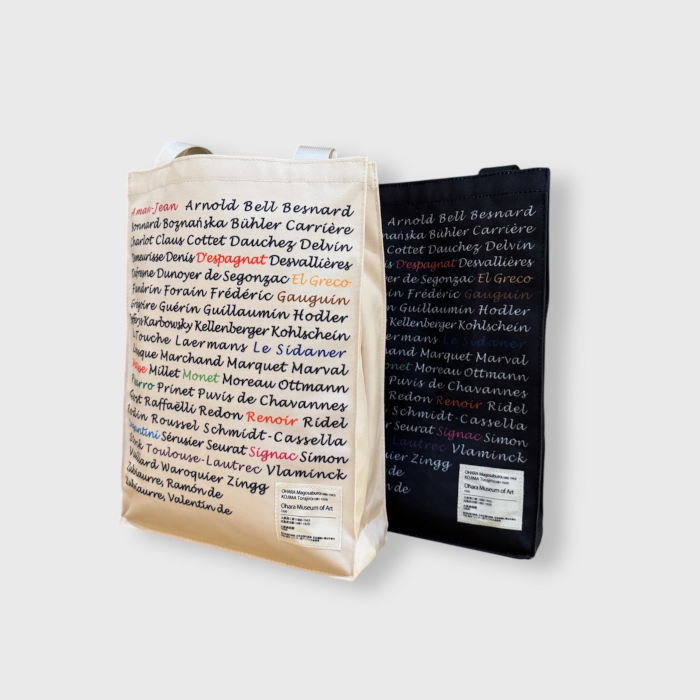 Aman-Jean Arnold Bell Besnard
Bonnard Boznańska Bühler Carrière
Charlot Claus Cottet Dauchez Delvin
Denis D'espagnat Desvallières
Dunoyer de Segonzac El Greco
Forain Frédéric Gauguin
Guérin Guillaumin Hodler
Karbowsky Kellenberger Kohlschein
La Touche Laermans Le Sidaner
Marchand Marquet Marval
Matisse Millet Monet Moreau Ottmann
Prinet Puvis de Chavannes
Raffaëlli Redon Renoir Ridel
Rodin Roussel Schmidt-Cassella
Segantini Sérusier Seurat Signac Simon
Toulouse-Lautrec Vlaminck
Vuillard Waroquier Zingg
Zubiaurre, Ramón de
Zubiaurre, Valentín de
OHARA Magosaburo
KOJIMA Torajiro
Ohara Museum of Art
Arnold Bell Besnard
Bühler Carrière
Cottet Dauchez Delvin
Denis D'espagnat Desvallières
de Segonzac El Greco
Frédéric Gauguin
Guillaumin Hodler
Kellenberger Kohlschein
Laermans Le Sidaner
Marquet Marval
Monet Moreau Ottmann
Puvis de Chavannes
Redon Renoir Ridel
Schmidt-Cassella
Seurat Signac Simon
Lautrec Vlaminck
Zingg
de
de
OHARA Magosaburo
KOJIMA Torajiro
Ohara Museum of Art